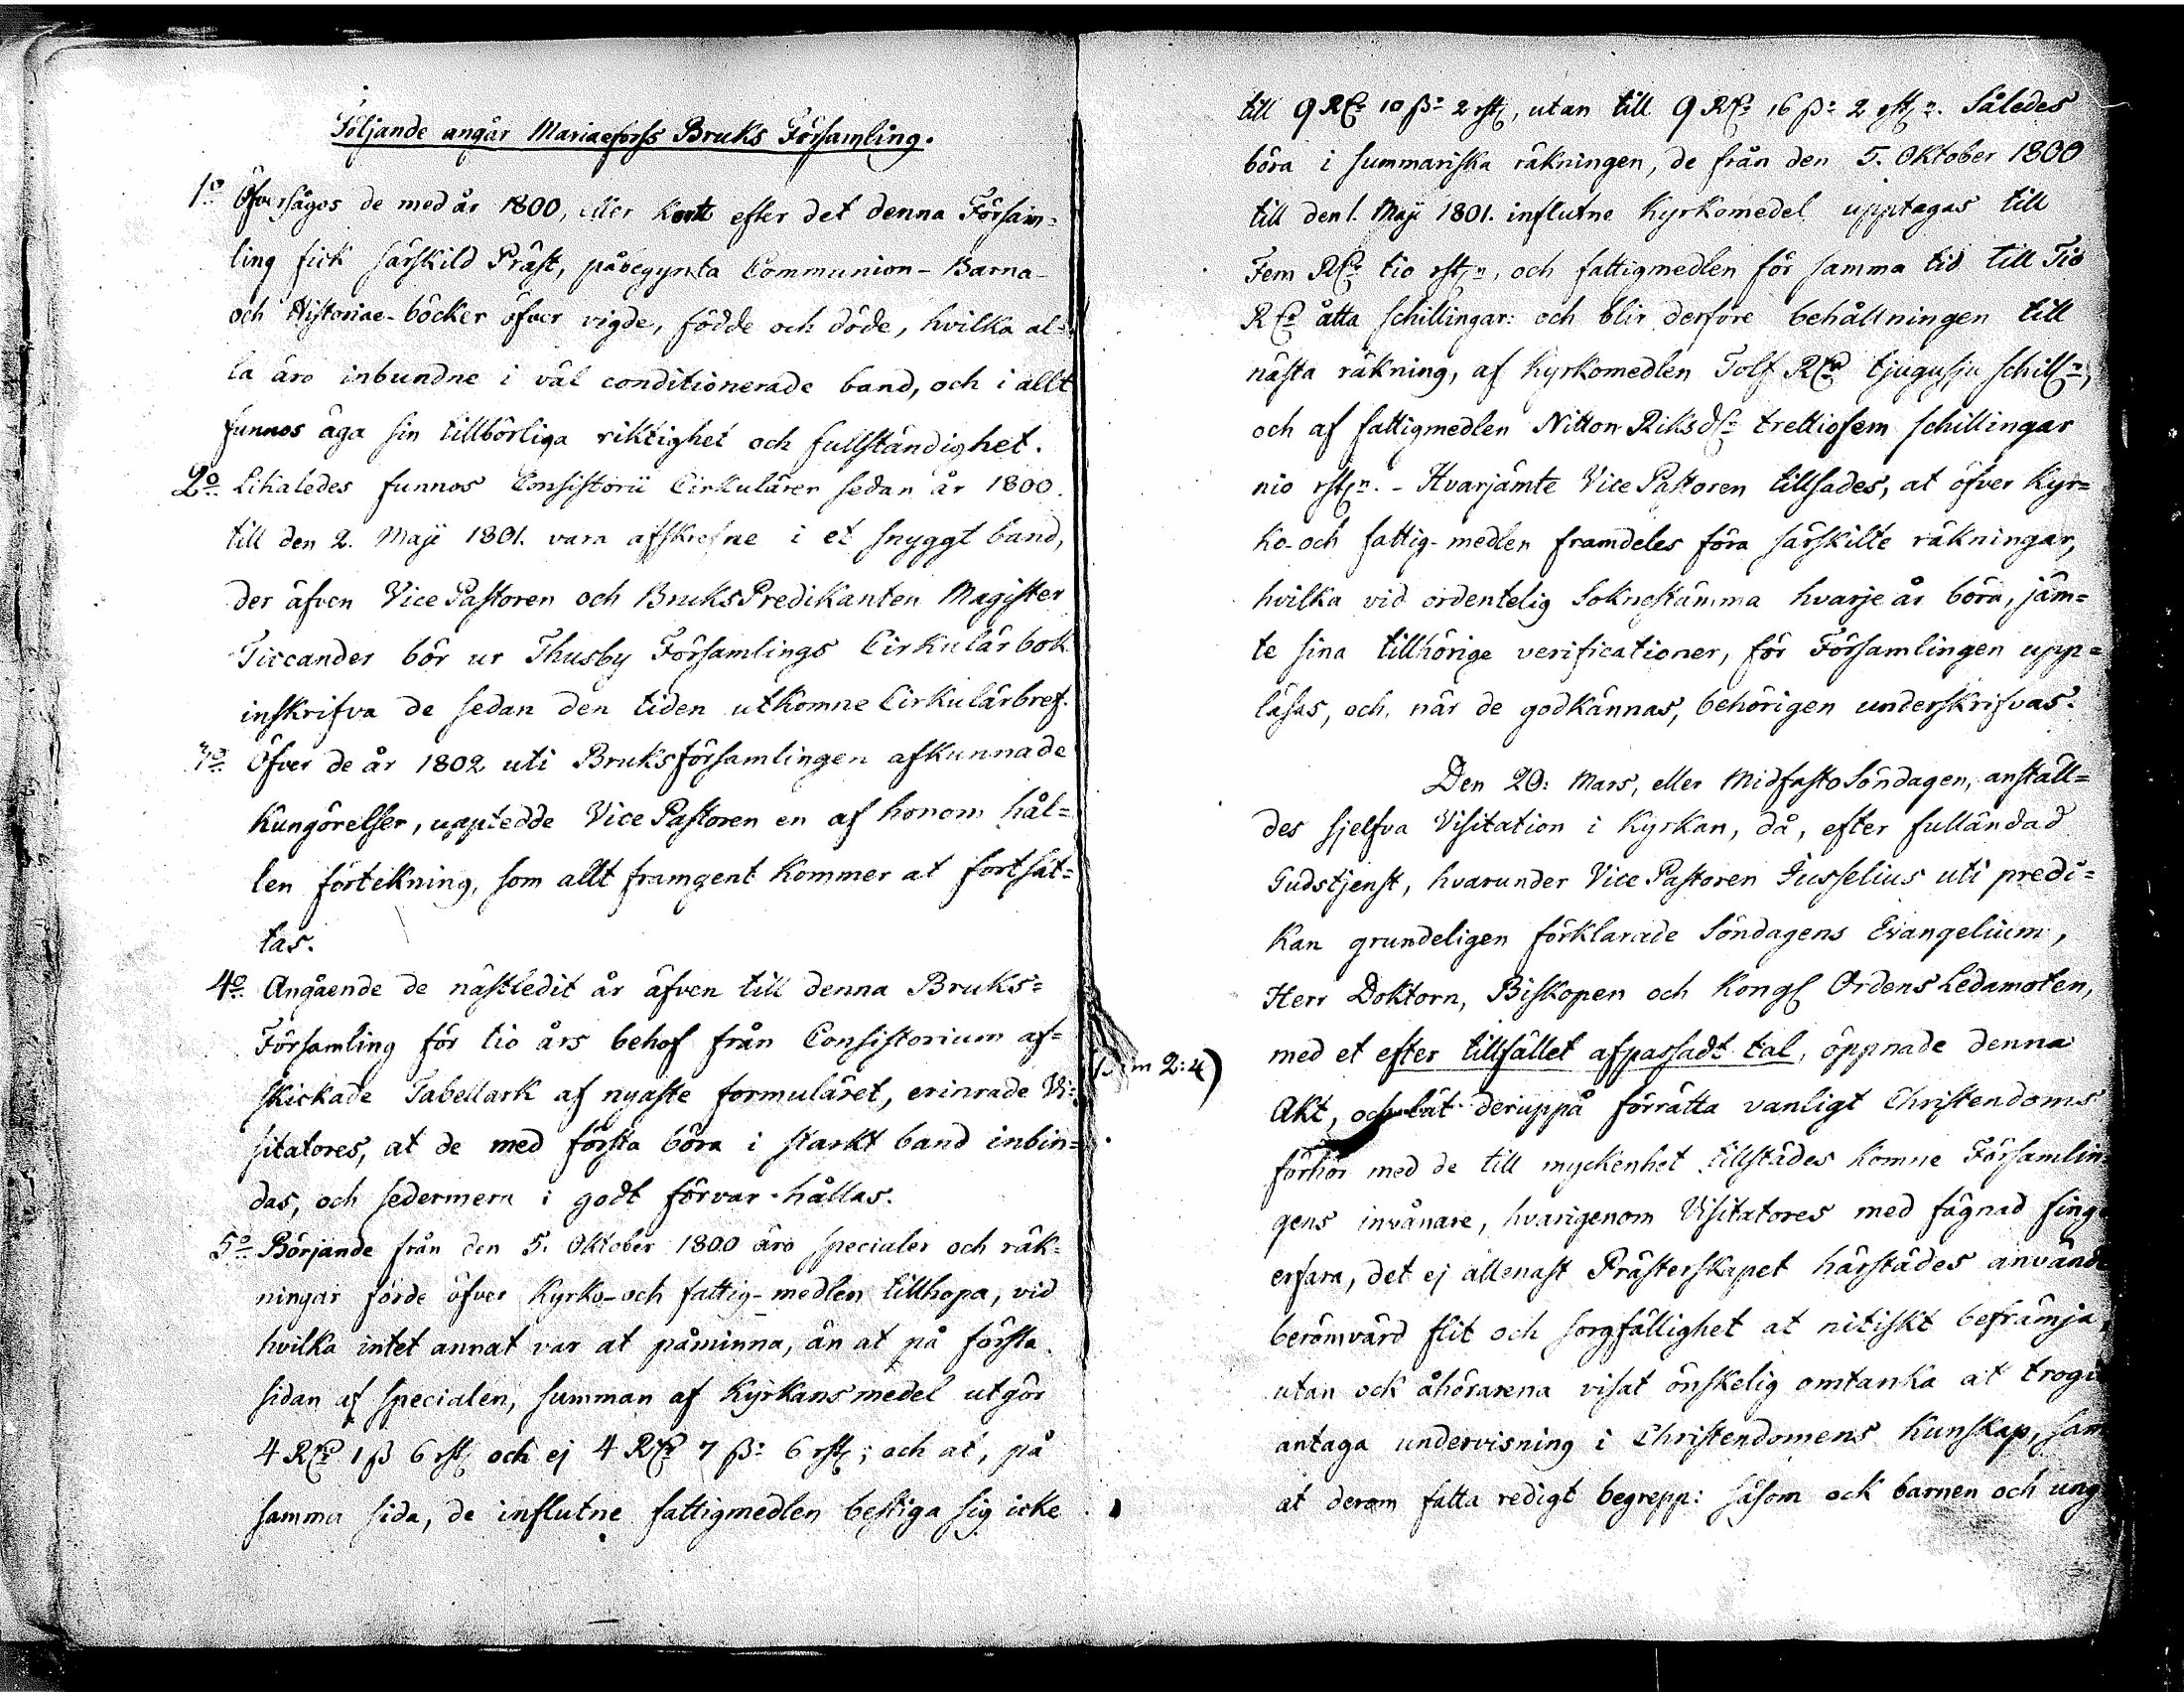 Följande angår Mariaeforss Bruks Församling.
1o Öfversågos de med år 1800, eller kort efter det denna Försam=
ling fick särskild Präst, påbegynta Communion- Barna-
och Historiae-böcker öfver vigde, födde och döde, hvilka al=
la äro inbundne i väl conditionerade band, och i allt
funnos äga sin tillbörliga riktighet och fullständighet.
2o Likaledes funnos Consistorii Cirkulärer sedan år 1800.
till den 2. Maji 1801. vara afskrefne i et snyggt band,
der äfven Vice Pastoren och BruksPredikanten Magister
Ticcander bör ur Thusby Församlings Cirkulärbok
inskrifva de sedan den tiden utkomne Cirkulärbref.
3o Öfver de år 1802 uti Bruksförsamlingen afkunnade
kungörelser, upptedde Vice Pastoren en af honom hål=
len förtekning, som allt framgent kommer at fortsät=
tas.
4o Angående de nästledit år äfven till denna Bruks=
Församling för tio års behof från Consistorium af=
skickade Tabellark af nyaste formuläret, erinrade Vi=
sitatores, at de med första böra i starkt band inbin=
das, och sedermera i godt förvar hållas.
5o Börjande från den 5. Oktober 1800 äro specialer och räk=
ningar förde öfver Kyrko- och fattig-medlen tillhopa, vid
hvilka intet annat var at påminna, än at på första
sidan af specialen, summan af Kyrkans medel utgör
4 Rd 1 ß 6 rst och ej 4 Rd 7 ß: 6 rst; och at, på
samma sida, de influtne fattigmedlen bestiga sig icke
till 9 Rd 10 ß: 2 rst, utan till 9 Rd 16 ß: 2 rst:. Således
böra i summariska räkningen, de från den 5. Oktober 1800
till den 1. Maji 1801. influtne Kyrkomedel upptagas till
Fem Rd tio rst:n, och fattigmedlen för samma tid till Tio
Rd åtta schillingar: och blir derföre behållningen till
nästa räkning, af Kyrkomedlen Tolf Rd tjugusju schill:r,
och af fattigmedlen Nitton Riksd:r trettiofem schillingar
nio rst:n. - Hvarjämte Vice Pastoren tillsades, at öfver Kyr=
ko- och fattig-medlen framdeles föra särskilte räkningar,
hvilka vid ordentelig Soknestämma hvarje år böra, jäm=
te sina tillhörige verificationer, för Församlingen upp=
läsas, och, när de godkännas, behörigen underskrifvas.
Den 20: Mars, eller Midfasto Söndagen, anställ=
des sjelfva Visitation i Kyrkan, då, efter fulländad
Gudstjenst, hvarunder Vice Pastoren Jusselius uti predi=
kan grundeligen förklarade Söndagens Evangelium,
Herr Doktorn, Biskopen och Kongl Ordens Ledamoten,
med et efter tillfället afpassadt tal, öppnade denna
2:4)
Akt, och lät deruppå förrätta vanligt Christendoms
förhör med de till myckenhet tillstädes komne Församlin=
gens invånare, hvarigenom Visitatores med fägnad fing
erfara, det ej allenast Prästerskapet härstädes använd
berömvärd flit och sorgfällighet at nitiskt befrämja,
utan ock åhörarena visat önskelig omtanka at trogi
antaga undervisning i Christendomens kunskap, sam
at derom fatta redigt begrepp: såsom ock barnen och ung